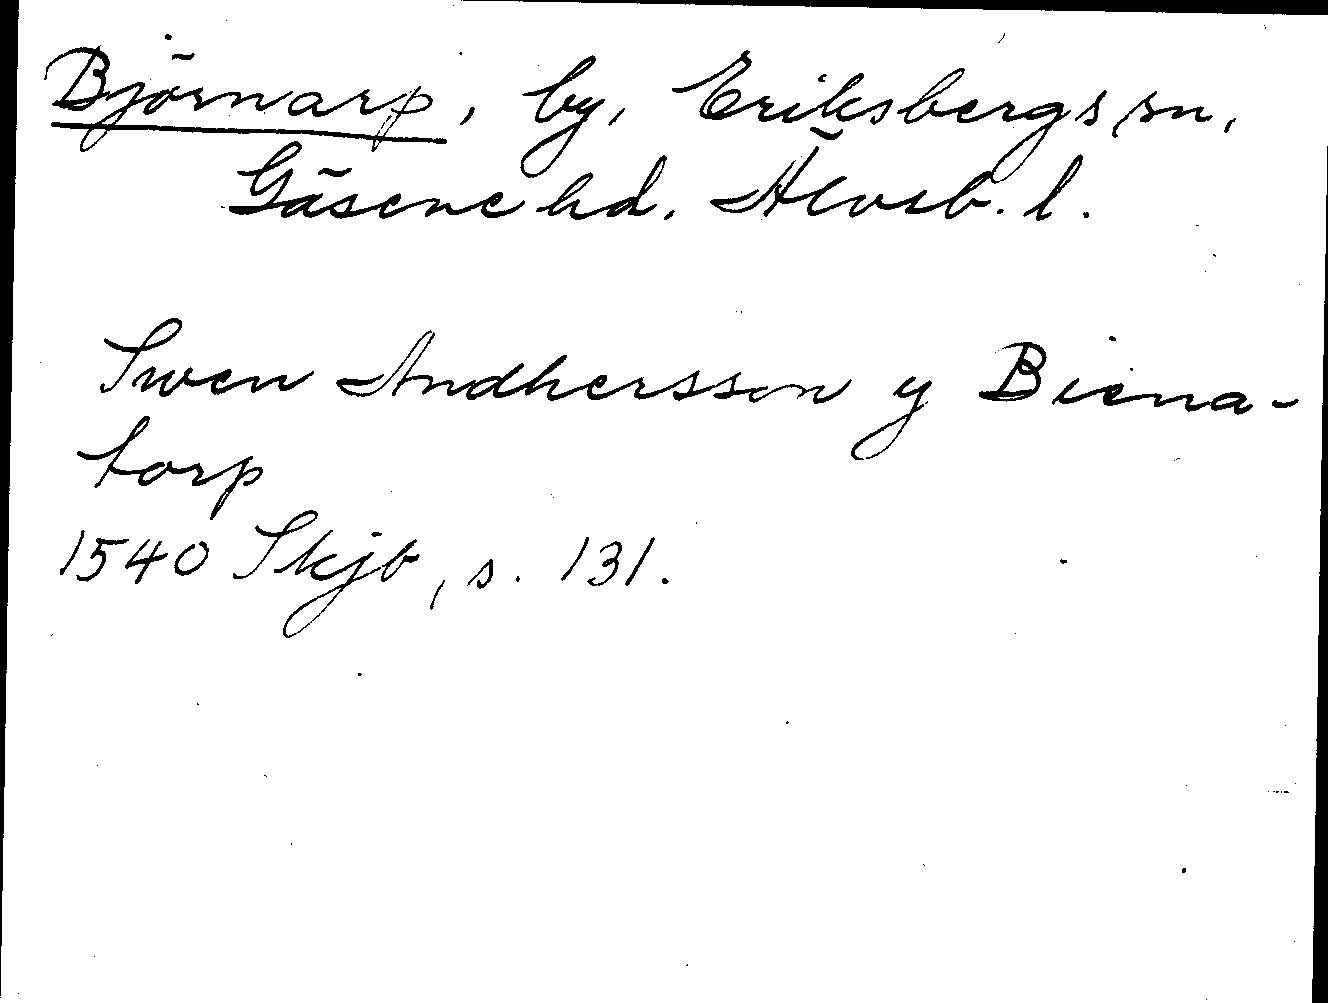 Björnarp, by, Eriksbergs sn,
Gäsene hd. Älvsb. l.
Swen Andhersson y Biena-
torp
1540 Skjb, s. 131.